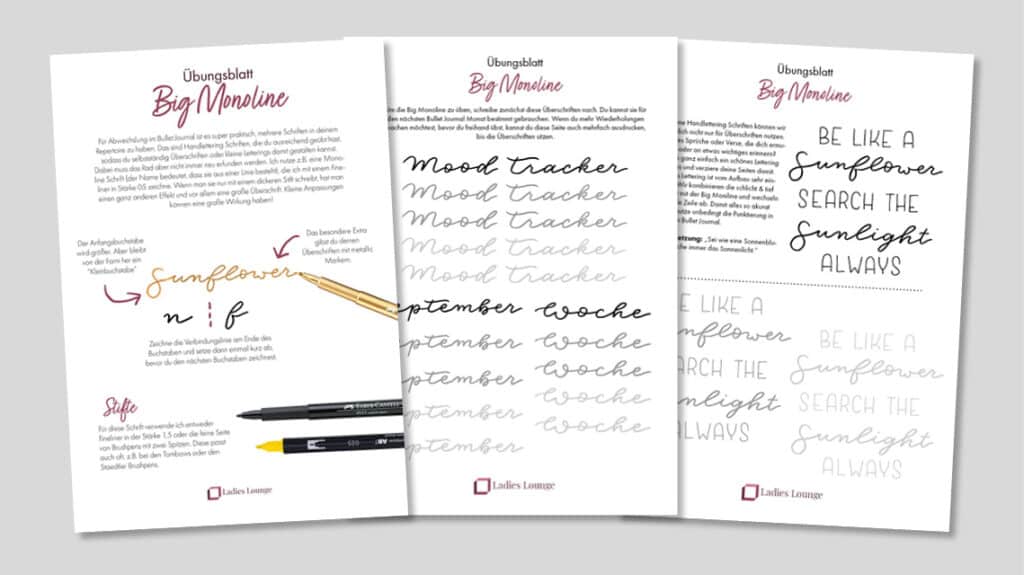 Übungsblatt
Big Monoline
Für Abwechslung im Bullet Journal ist es super praktisch, mehrere Schriften in deinem
Repertoire zu haben. Das sind Handlettering Schriften, die du ausreichend geübt hast,
sodass du selbstständig Überschriften oder kleine Letterings damit gestalten kannst.
Dabei muss das Rad aber nicht immer neu erfunden werden. Ich nutze z.B. eine Mono-
line Schrift (der Name bedeutet, dass sie aus einer Linie besteht), die ich mit einem Fine-
liner in Stärke 0.5 zeichne. Wenn man sie nur mit einem dickeren Stift schreibt, hat man
einen ganz anderen Effekt und vor allem eine große Überschrift. Kleine Anpassungen
können eine große Wirkung haben!
Der Anfangsbuchstabe
wird größer. Aber bleibt
von der Form her ein
"Kleinbuchstabe"
Das besondere Extra
gibst du deinen
Überschriften mit metallic
Markern.
Sunflower
n f
Zeichne die Verbindungslinie am Ende des
Buchstaben und setze dann einmal kurz ab,
bevor du den nächsten Buchstaben zeichnest.
Stifte
Für diese Schrift verwende ich entweder
Fineliner in der Stärke 1,5 oder die feine Seite
von Brushpens mit zwei Spitzen. Diese passt
auch oft z.B. bei den Tombows oder den
Staedtler Brushpens.
FABER-CASTELL
Ladies Lounge
Übungsblatt
Big Monoline
die Big Monoline zu üben, schreibe zunächst diese Überschriften nach. Du kannst sie für
den nächsten Bullet Journal Monat bestimmt gebrauchen. Wenn du mehr Wiederholungen
machen möchtest, bevor du freihand übst, kannst du diese Seite auch mehrfach ausdrucken,
bis die Überschriften sitzen.
Mood Tracker
Mood Tracker
Mood Tracker
Mood Tracker
Mood Tracker
ptember Woche
ptember Woche
ptember Woche
ptember Woche
ptember Woche
Ladies Lounge
Übungsblatt
Big Monoline
Handlettering Schriften können wir
lich nicht nur für Überschriften nutzen.
es Sprüche oder Verse, die dich ermu-
oder an etwas wichtiges erinnern?
ganz einfach ein schönes Lettering
und verziere deine Seiten damit.
Lettering ist vom Aufbau sehr ein-
Wir kombinieren die schlicht & tief
mit der Big Monoline und wechseln
Zeile ab. Damit alles so akurat
nutze unbedingt die Punktierung in
Bullet Journal.
setzung: „Sei wie eine Sonnenblu-
che immer das Sonnenlicht."
BE LIKE A
Sunflower
SEARCH THE
Sunlight
ALWAYS
E LIKE A
nflower
ARCH THE
nlight
LWAYS
BE LIKE A
Sunflower
SEARCH THE
Sunlight
ALWAYS
Ladies Lounge